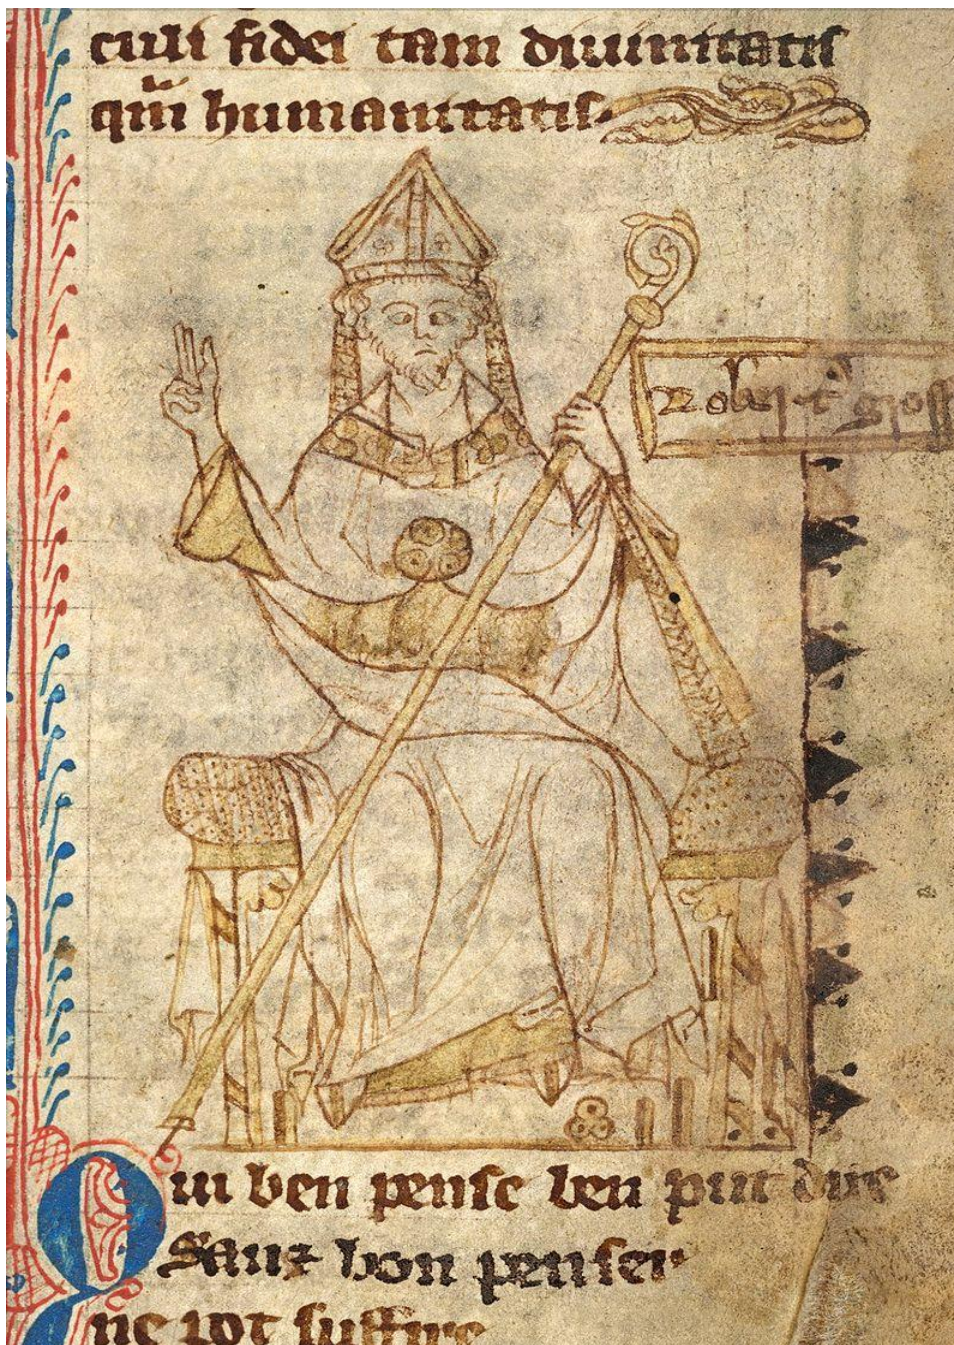 culi fidei tam diuinitatis
qm̄ humanitatis
Robert gross
Qui ben pense ben put dire
Sanz bon penser
ne pot suffire